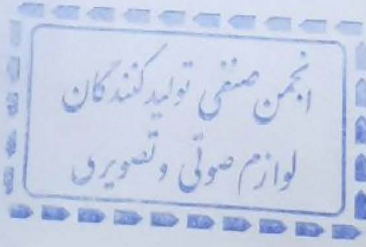 انجمن صنفی تولید کنندگان
لوازم صوتی و تصویری